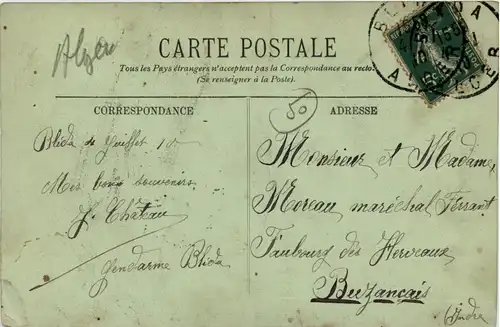 Alger
BLIDA
ALGER
CARTE POSTALE
Tous les Pays étrangers n'acceptent pas la Correspondance au recto.
(Se renseigner à la Poste).
50
CORRESPONDANCE
Blida
Mes bons souvenirs
J. Château
gendarme Blida
ADRESSE
Monsieur et Madame
Moreau maréchal Ferrant
Faubourg des Hervaux
Buzançais
Indre